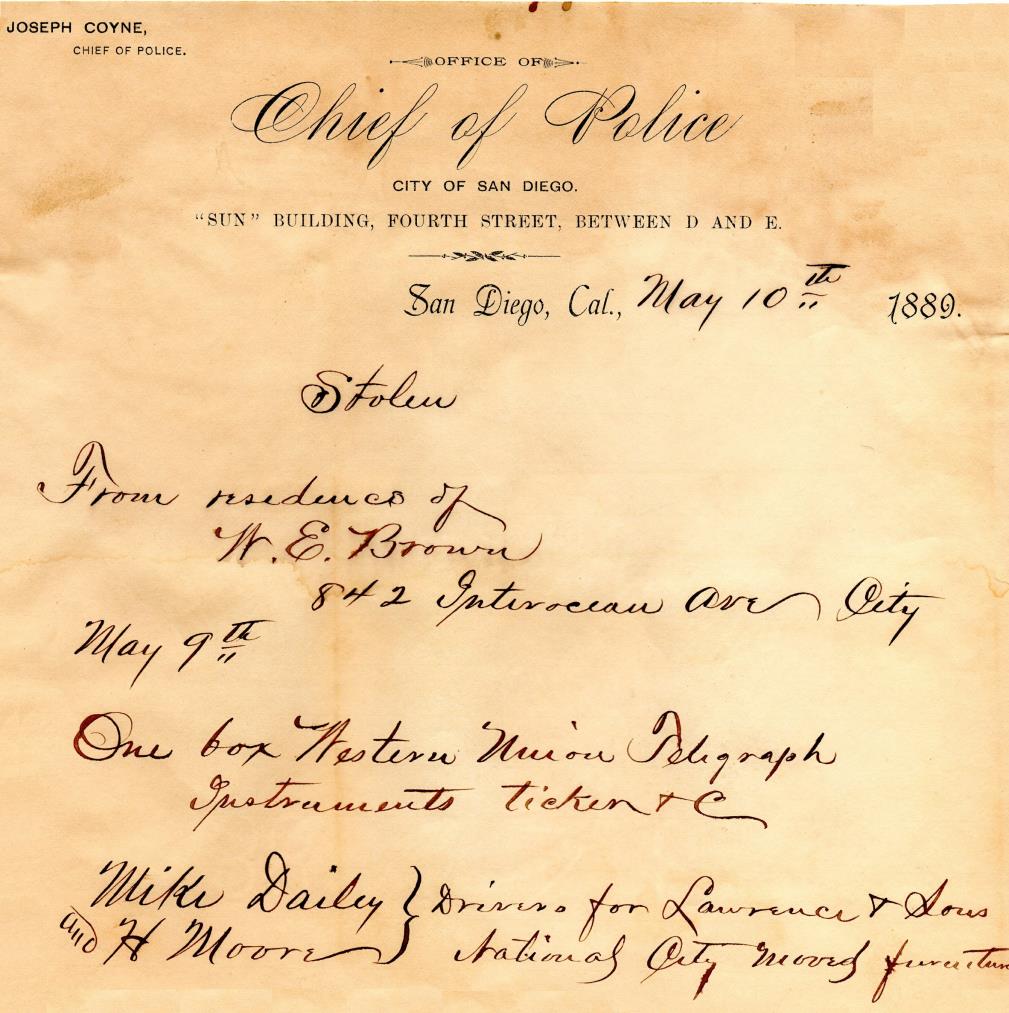 JOSEPH COYNE,
CHIEF OF POLICE.
OFFICE OF
Chief of Police
CITY OF SAN DIEGO.
"SUN" BUILDING, FOURTH STREET, BETWEEN D AND E.
San Diego, Cal., May 10th 1889.
Stolen
From residence of
W. E. Brown
842 Interocean Ave City
May 9th
One box Western Union Telegraph
Instruments ticker & C
Mike Dailey } Drivers for Lawrence & Sons
and H Moore } National City moved furniture